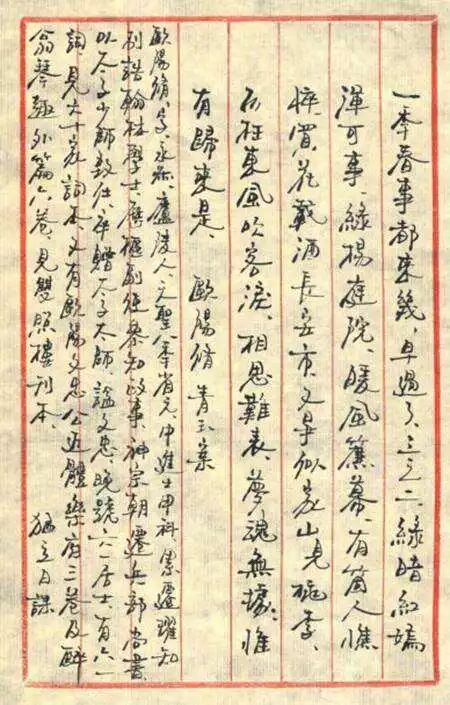 一年春事都來幾、早過了、三之二、綠暗紅嫣
渾可事、綠楊庭院、暖風簾幕、有箇人憔
悴、買花載酒長安市、又爭似家山見桃李、
不枉東風吹客淚、相思難表、夢魂無據、惟
有歸來是 歐陽脩 青玉案
歐陽脩、字永叔、廬陵人、天聖年省元、中進士甲科、累遷擢知
制誥翰林學士歷樞副使參知政事、神宗朝遷兵部尚書
以太子少師致仕、卒贈太子太師、謚文忠、晚號六一居士、有六一
詞、見六十家詞本、又有歐陽文忠公近體樂府三卷及醉
翁琴趣外篇六卷、見雙照樓刊本、 日課